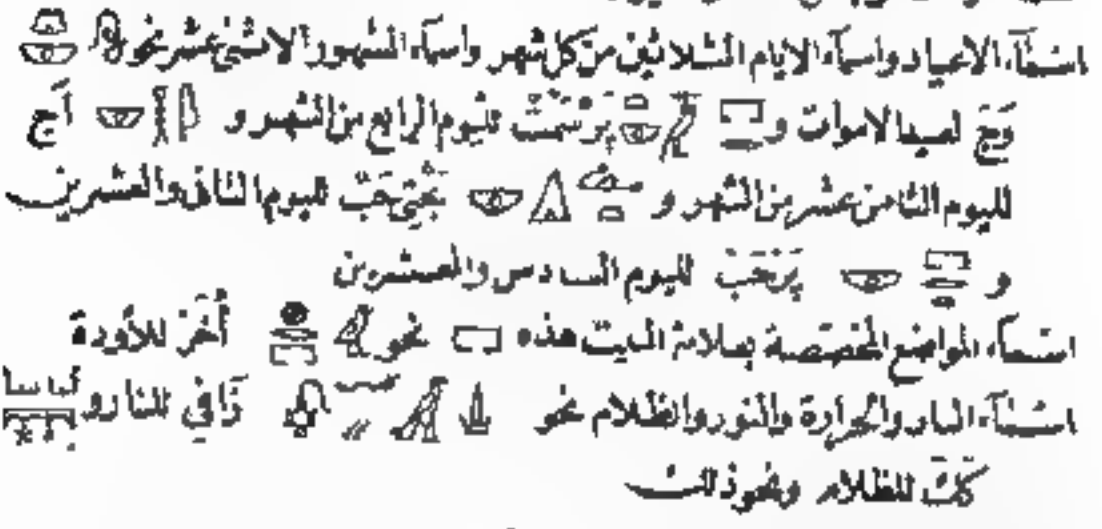 اسمآء الاعياد واسمآء الايام الثلاثين من كل شهر واسمآء الشهور الاثنى عشر نحو
وَجَ لعيد الاموات و پرسمت لليوم الرابع من الشهر و اَج
لليوم الثامن عشر من الشهر و حَبْ لليوم الثانى والعشرين
و پَرْتحَبْ لليوم السادس والعشرين
اسمآء المواضع المختصة بعلامة البيت هذه نحو أُخَرْ للأودة
اسمآء النار والحرارة والنور والظلام نحو زَافِي للنار و
كَكْ للظلام ونحو ذلك